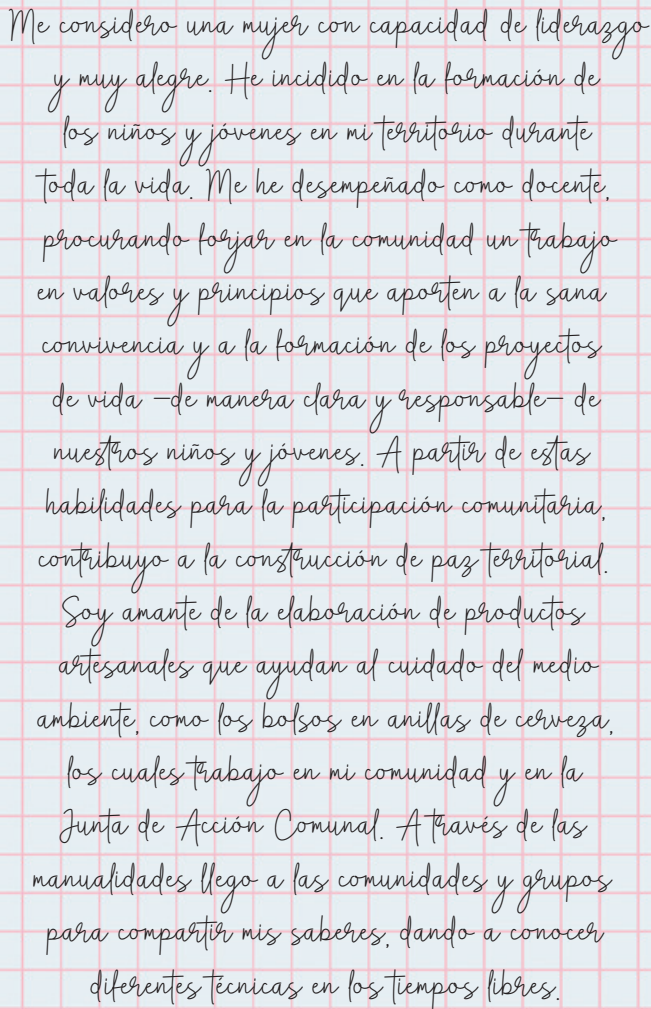 Me considero una mujer con capacidad de liderazgo
y muy alegre. He incidido en la formación de
los niños y jóvenes en mi territorio durante
toda la vida. Me he desempeñado como docente,
procurando forjar en la comunidad un trabajo
en valores y principios que aporten a la sana
convivencia y a la formación de los proyectos
de vida –de manera clara y responsable– de
nuestros niños y jóvenes. A partir de estas
habilidades para la participación comunitaria,
contribuyo a la construcción de paz territorial.
Soy amante de la elaboración de productos
artesanales que ayudan al cuidado del medio
ambiente, como los bolsos en anillas de cerveza,
los cuales trabajo en mi comunidad y en la
Junta de Acción Comunal. A través de las
manualidades llego a las comunidades y grupos
para compartir mis saberes, dando a conocer
diferentes técnicas en los tiempos libres.